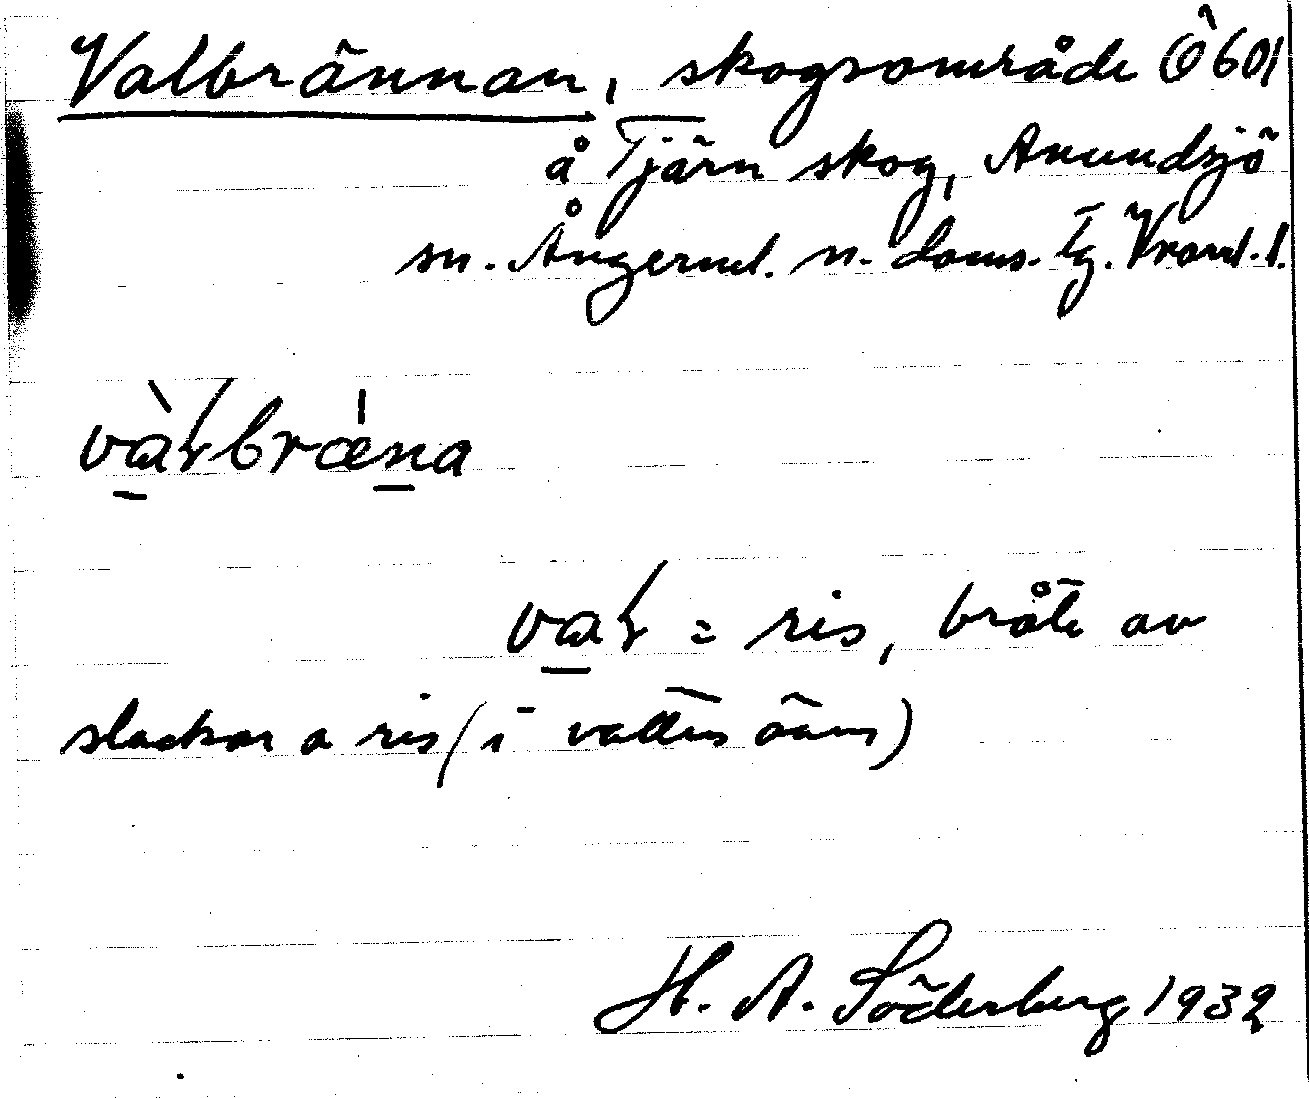 Valbrännan, skogsområde Ö 601
å Tjärn skog, Anundsjö
sn. Ångerml. n. doms. tg. Vnorrl. l.
vàłbræna
vał = ris, bråte av
slackar o ris (i vatten även)
H. A. Söderberg 1932